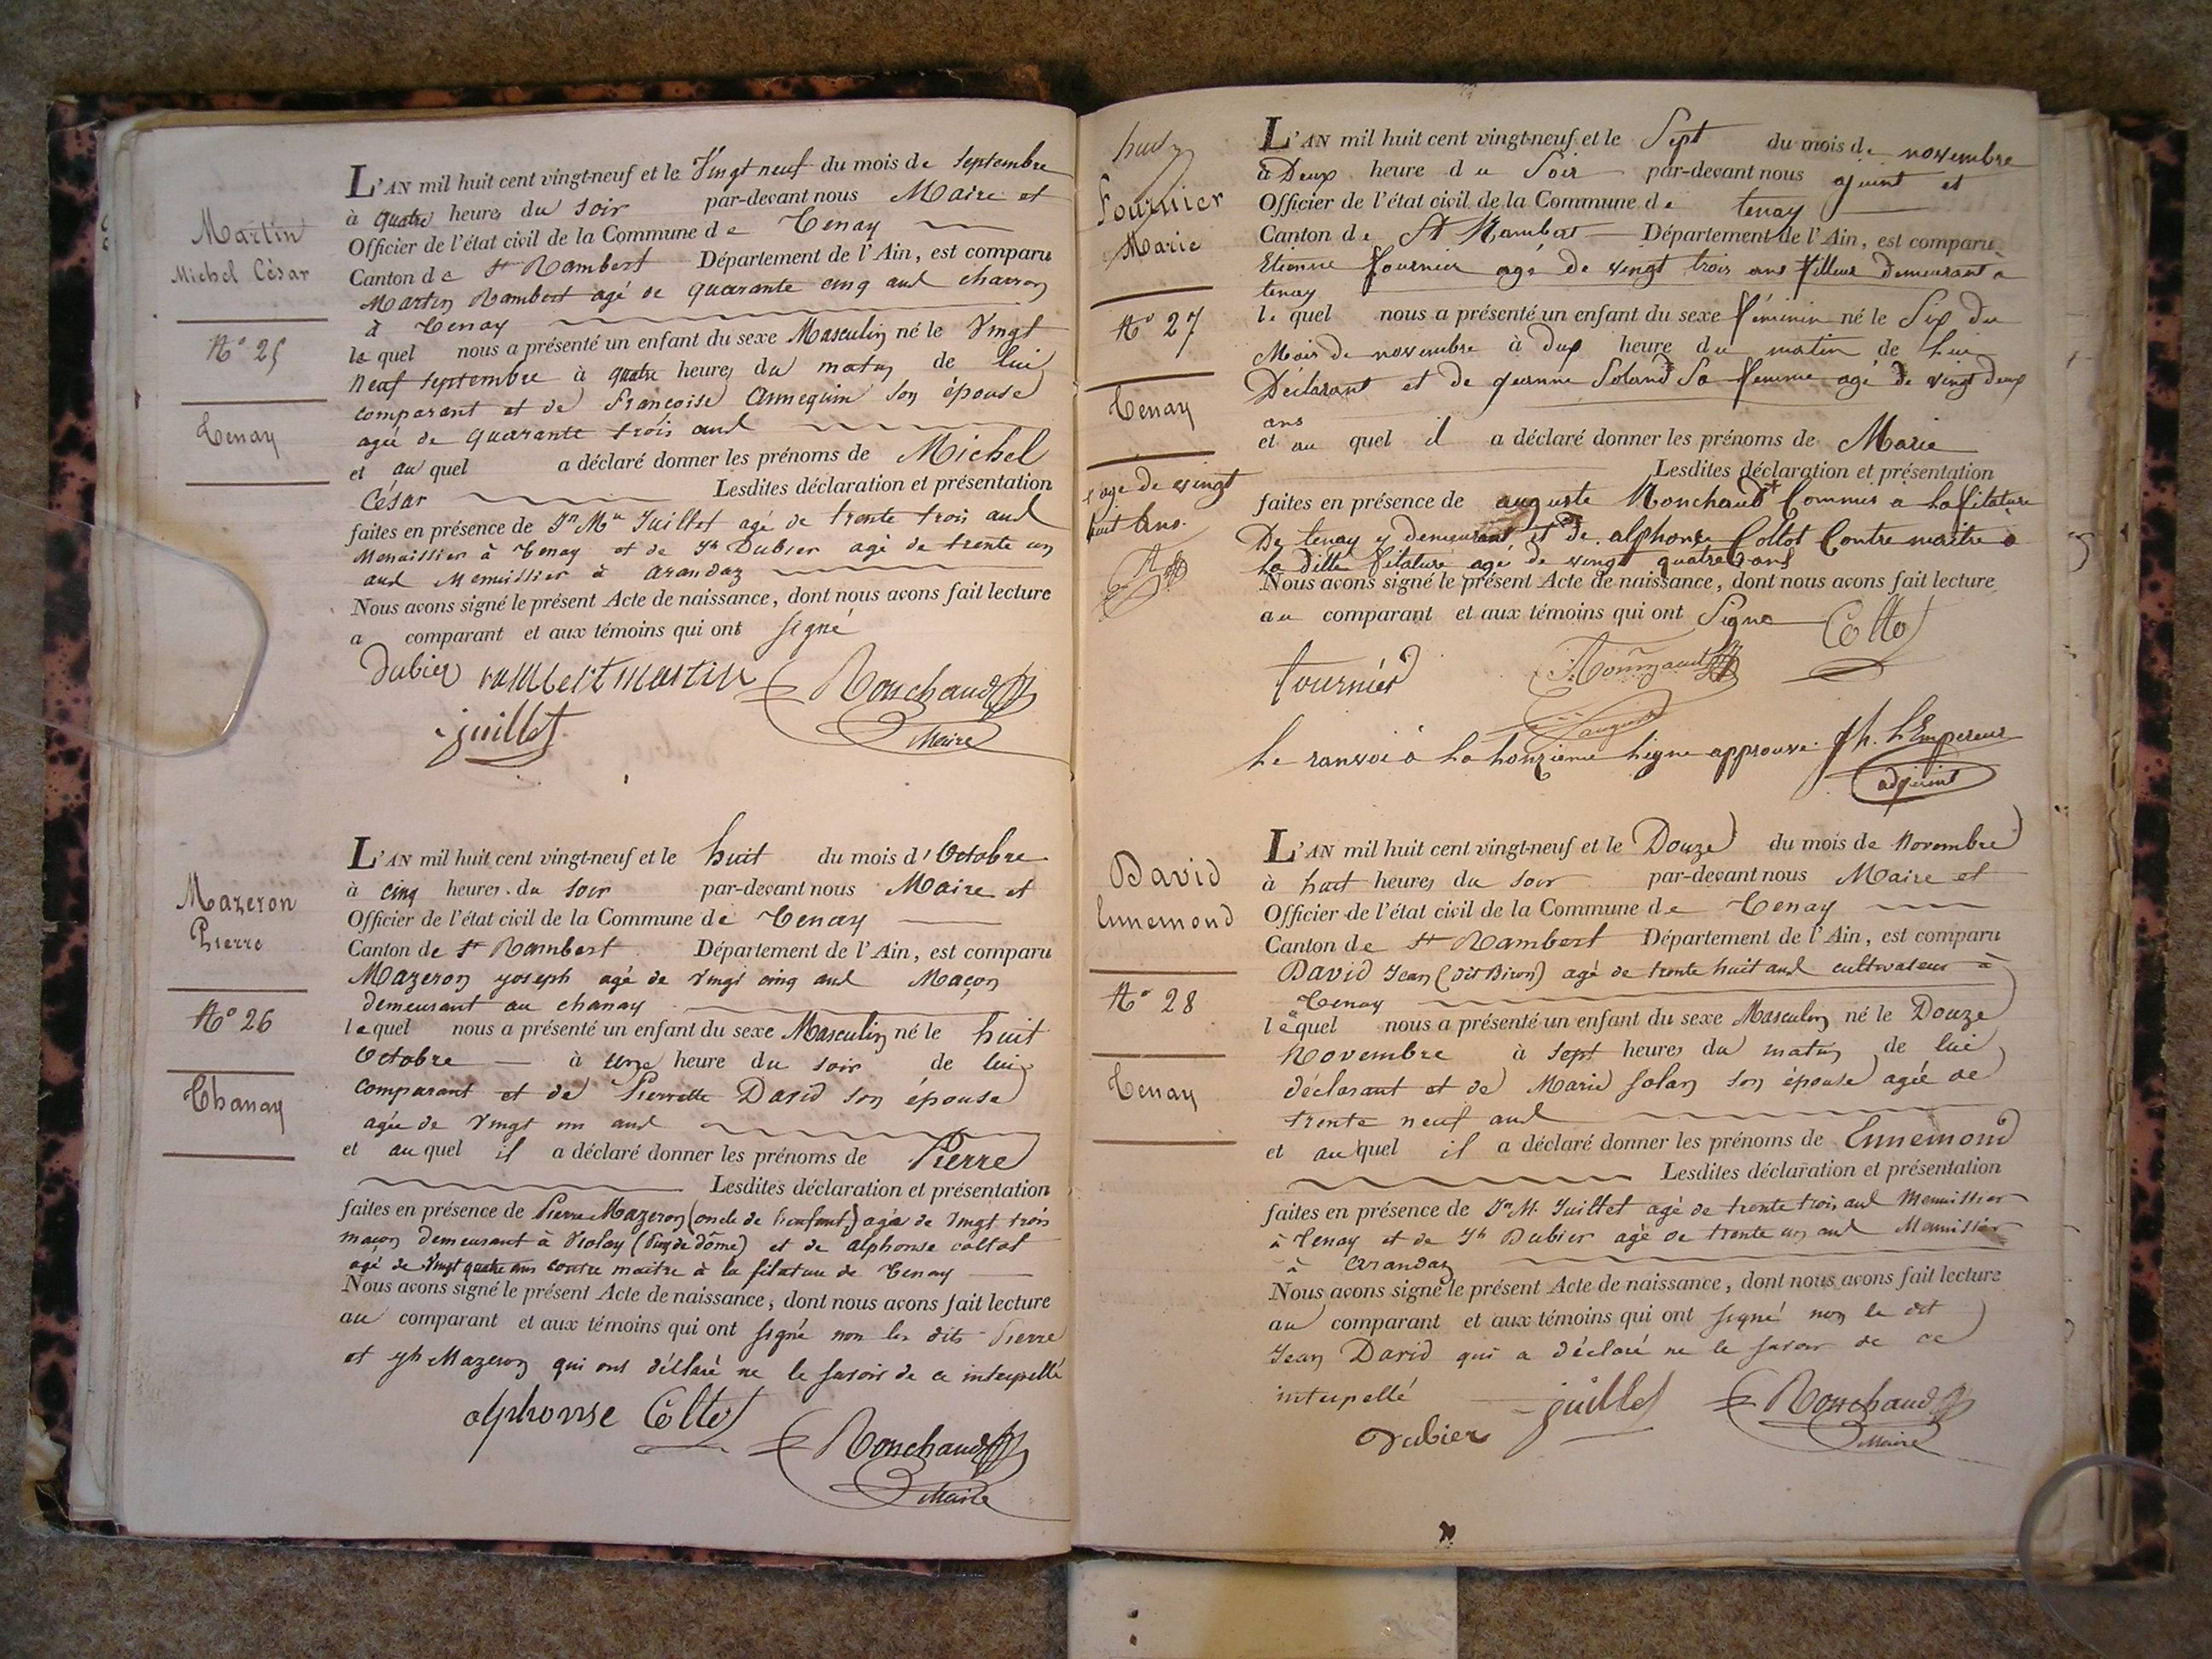 Martin
Michel César
N° 25
Tenay
L'AN mil huit cent vingt-neuf et le Vingt neuf du mois de Septembre
à quatre heures du soir par-devant nous Maire et
Officier de l'état civil de la Commune de Tenay
Canton de St Rambert Département de l'Ain, est comparu
Martin Rambert agé de quarante cinq ans charron
à Tenay
lequel nous a présenté un enfant du sexe Masculin né le Vingt
neuf septembre à quatre heures du matin de lui
comparant et de Françoise Annequin son épouse
agée de quarante trois ans
et au quel a déclaré donner les prénoms de Michel
César Lesdites déclaration et présentation
faites en présence de Jn Mie Juillet agé de trente trois ans
Menuissier à Tenay et de Jh Dubier agé de trente un
ans Menuissier à Arandaz
Nous avons signé le présent Acte de naissance, dont nous avons fait lecture
a comparant et aux témoins qui ont signé
Dubier rambert martin Ronchaud
juillet Maire
Mazeron
Pierre
N° 26
Chanay
L'AN mil huit cent vingt-neuf et le huit du mois d'Octobre
à cinq heures du soir par-devant nous Maire et
Officier de l'état civil de la Commune de Tenay
Canton de St Rambert Département de l'Ain, est comparu
Mazeron joseph agé de vingt cinq ans Maçon
demeurant au chanay
lequel nous a présenté un enfant du sexe Masculin né le huit
Octobre à une heure du soir de lui
comparant et de Pierrette David son épouse
agée de vingt un ans
et au quel il a déclaré donner les prénoms de Pierre
Lesdites déclaration et présentation
faites en présence de Pierre Mazeron (oncle de l'enfant) agée de vingt trois
maçon demeurant à (Puy de dôme) et de alphonse coltot
agé de vingt quatre ans contre maitre à la filature de Tenay
Nous avons signé le présent Acte de naissance, dont nous avons fait lecture
au comparant et aux témoins qui ont signé non les dits Pierre
et jh Mazeron qui ont déclaré ne le savoir de ce interpellé
alphonse Coltot
Ronchaud
Maire
Fournier
Marie
N° 27
Tenay
age de vingt
huit ans
L'AN mil huit cent vingt-neuf et le Sept du mois de novembre
à Deux heure du Soir par-devant nous ajoint et
Officier de l'état civil de la Commune de tenay
Canton de St Rambert Département de l'Ain, est comparu
Etienne fournier agé de vingt trois ans filleur demeurant à
tenay
le quel nous a présenté un enfant du sexe féminin né le Six du
Mois de novembre à dix heure du matin de lui
Déclarant et de jeanne Soland Sa femme agé de vingt deux
ans
et au quel il a déclaré donner les prénoms de Marie
Lesdites déclaration et présentation
faites en présence de auguste Ronchaud Commis a la filature
De tenay y demeurant et de alphonse Coltot Contre maitre a
La ditte filature agé de vingt quatre ans
Nous avons signé le présent Acte de naissance, dont nous avons fait lecture
au comparant et aux témoins qui ont Signe Colto
fournier Ronchaud
Le ranvoi à la honzieme ligne approuve jh. L'Empereur
adjoint
David
Ennemond
N° 28
Tenay
L'AN mil huit cent vingt-neuf et le Douze du mois de Novembre
à huit heures du soir par-devant nous Maire et
Officier de l'état civil de la Commune de Tenay
Canton de St Rambert Département de l'Ain, est comparu
David Jean (dit Biron) agé de trente huit ans cultivateur à
Tenay
lequel nous a présenté un enfant du sexe Masculin né le Douze
Novembre à sept heures du matin de lui
déclarant et de Marie Solan son épouse agée de
trente neuf ans
et au quel il a déclaré donner les prénoms de Ennemond
Lesdites déclaration et présentation
faites en présence de Jn M. Juillet agé de trente trois ans Menuissier
à Tenay et de Jh Dubier agé de trente un ans Menuissier
à Arandaz
Nous avons signé le présent Acte de naissance, dont nous avons fait lecture
au comparant et aux témoins qui ont signé non le dit
Jean David qui a déclaré ne le savoir de ce
interpellé juillet Ronchaud
Dubier Maire